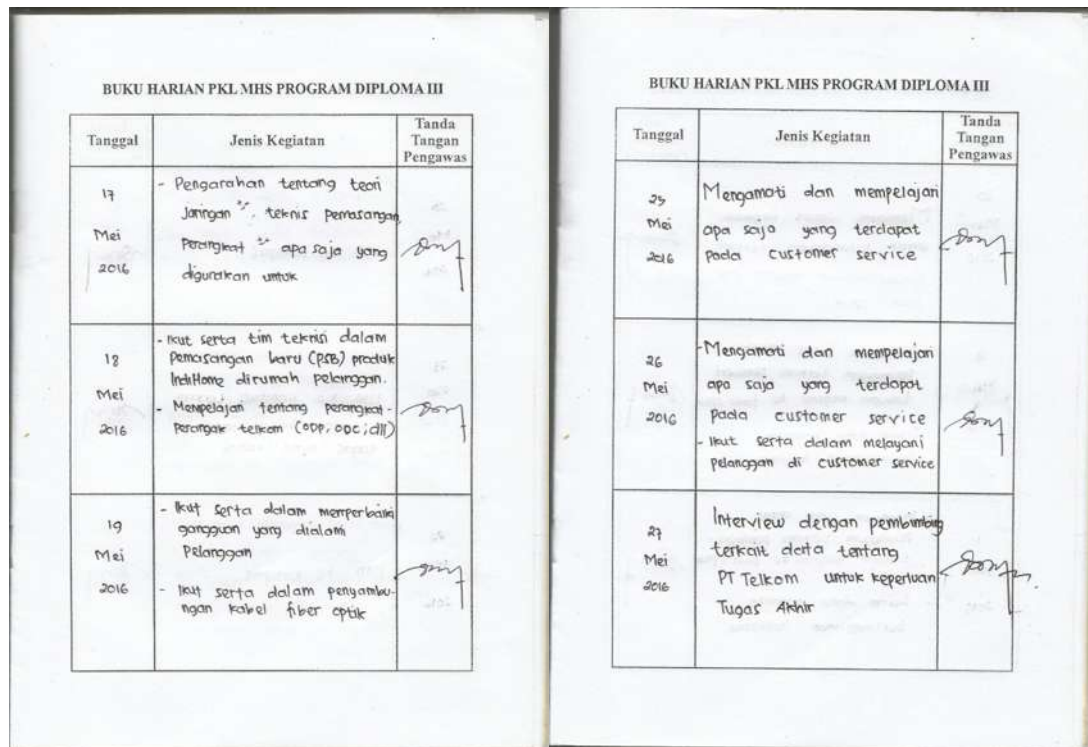 BUKU HARIAN PKL MHS PROGRAM DIPLOMA III
Tanggal
Jenis Kegiatan
Tanda
Tangan
Pengawas
17
Mei
2016
- Pengarahan tentang teori
Jaringan ², teknis pemasangan,
Perangkat ² apa saja yang
digunakan untuk
18
Mei
2016
- Ikut serta tim teknisi dalam
Pemasangan baru (PSB) produk
IndiHome dirumah pelanggan.
- Mempelajari tentang perangkat-
perangkat telkom (ODP, ODC, dll)
19
Mei
2016
- Ikut serta dalam memperbaiki
gangguan yang dialami
Pelanggan
- Ikut serta dalam penyambu-
ngan kabel fiber optik
BUKU HARIAN PKL MHS PROGRAM DIPLOMA III
Tanggal
Jenis Kegiatan
Tanda
Tangan
Pengawas
25
Mei
2016
Mengamati dan mempelajari
apa saja yang terdapat
pada customer service
26
Mei
2016
- Mengamati dan mempelajari
apa saja yang terdapat
pada customer service
- Ikut serta dalam melayani
pelanggan di customer service
27
Mei
2016
Interview dengan pembimbing
terkait data tentang
PT Telkom untuk keperluan
Tugas Akhir